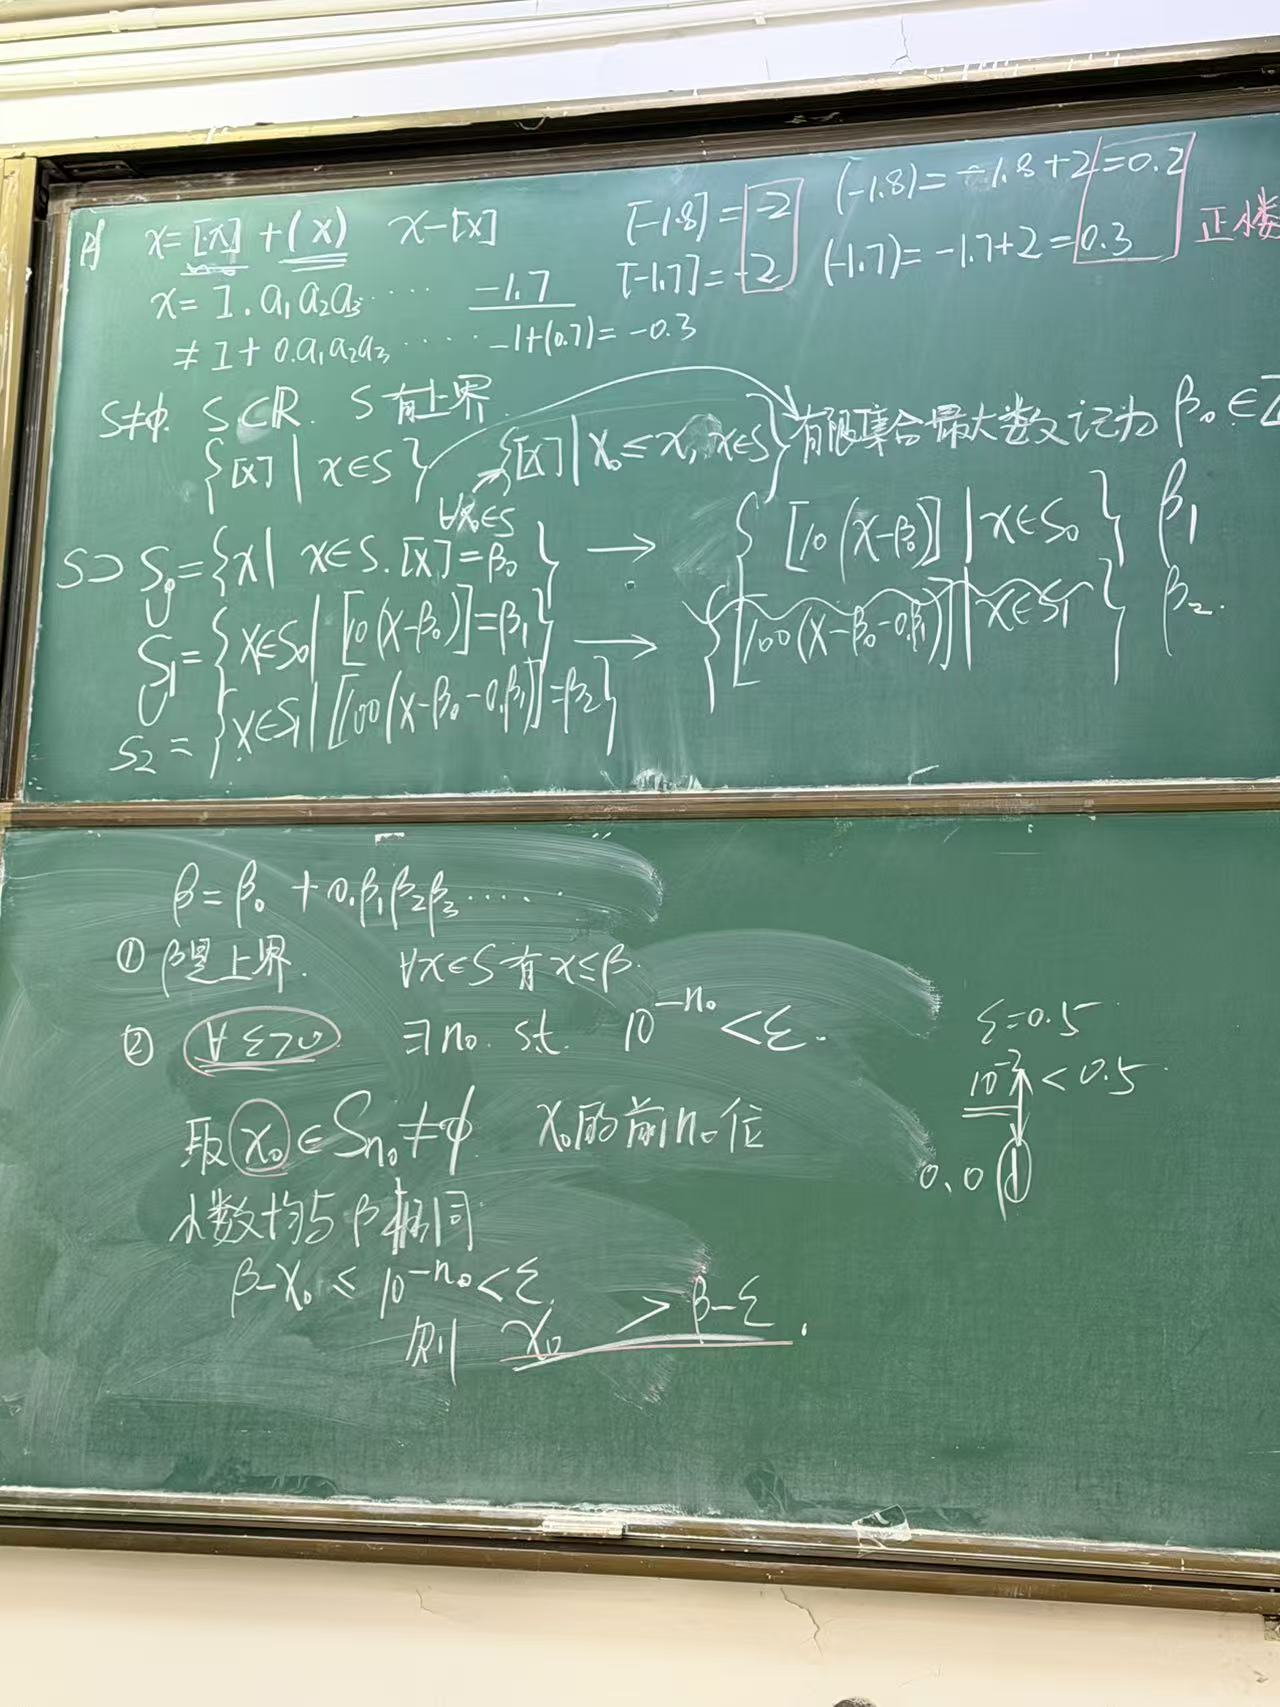 x=[x]+(x) x-[x] [-1.8]=-2 (-1.8)=-1.8+2=0.2
x=I.a₁a₂a₃⋯⋯ -1.7 [-1.7]=-2 (-1.7)=-1.7+2=0.3 正小
≠I+0.a₁a₂a₃⋯⋯ -1+(0.7)=-0.3
S≠φ. S⊂R. S有上界.
{[x]|x∈S} {[x]|x₀≤x, x∈S} 有限集合最大数记为 β₀∈Z
∀x₀∈S
S⊃S₀={x|x∈S.[x]=β₀} → {[10(x-β₀)]|x∈S₀} β₁
∪
S₁={x∈S₀|[10(x-β₀)]=β₁} → {[100(x-β₀-0.β₁)]|x∈S₁} β₂.
∪
S₂={x∈S₁|[100(x-β₀-0.β₁)]=β₂}
β=β₀+0.β₁β₂β₃⋯⋯
① β是上界. ∀x∈S有x≤β.
② ∀ε>0 ∃n₀. s.t. 10^{-n₀}<ε.
取x₀∈S_{n₀}≠φ x₀的前n₀位
小数均与β相同
β-x₀≤10^{-n₀}<ε.
则 x₀>β-ε.
ε=0.5
10^{-2}<0.5
0.01